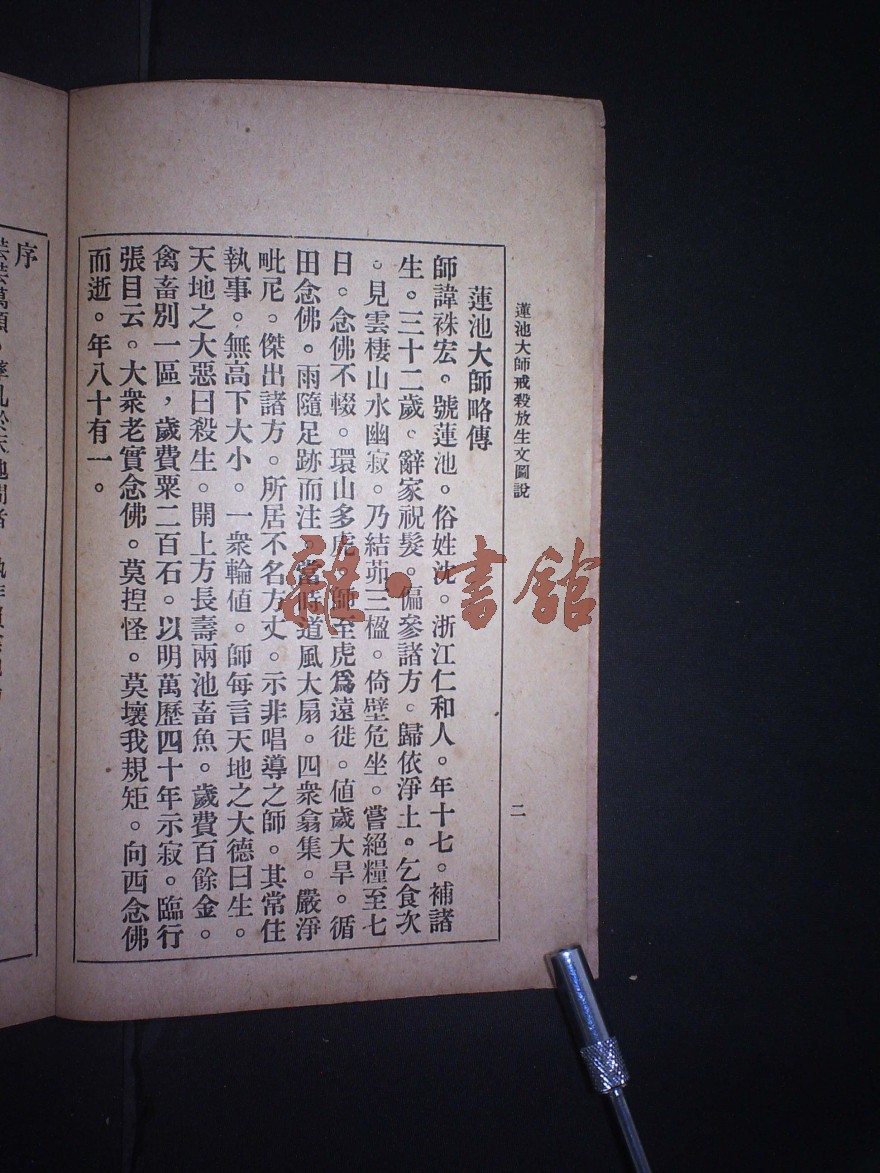 蓮池大師戒殺放生文圖說
二
蓮池大師略傳
師諱袾宏。號蓮池。俗姓沈。浙江仁和人。年十七。補諸
生。三十二歲。辭家祝髮。偏參諸方。歸依淨土。乞食次
。見雲棲山水幽寂。乃結茆三楹。倚壁危坐。嘗絕糧至七
日。念佛不輟。環山多虎。師至虎爲遠徙。値歲大旱。循
田念佛。雨隨足跡而注。當時道風大扇。四衆翕集。嚴淨
毗尼。傑出諸方。所居不名方丈。示非唱導之師。其常住
執事。無高下大小。一衆輪値。師每言天地之大德曰生。
天地之大惡曰殺生。開上方長壽兩池畜魚。歲費百餘金。
禽畜別一區，歲費粟二百石。以明萬歷四十年示寂。臨行
張目云。大衆老實念佛。莫捏怪。莫壞我規矩。向西念佛
而逝。年八十有一。
序
雜·書館